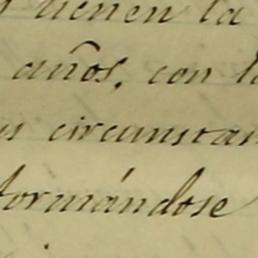 tienen la
años, con l
circunstan
formándose